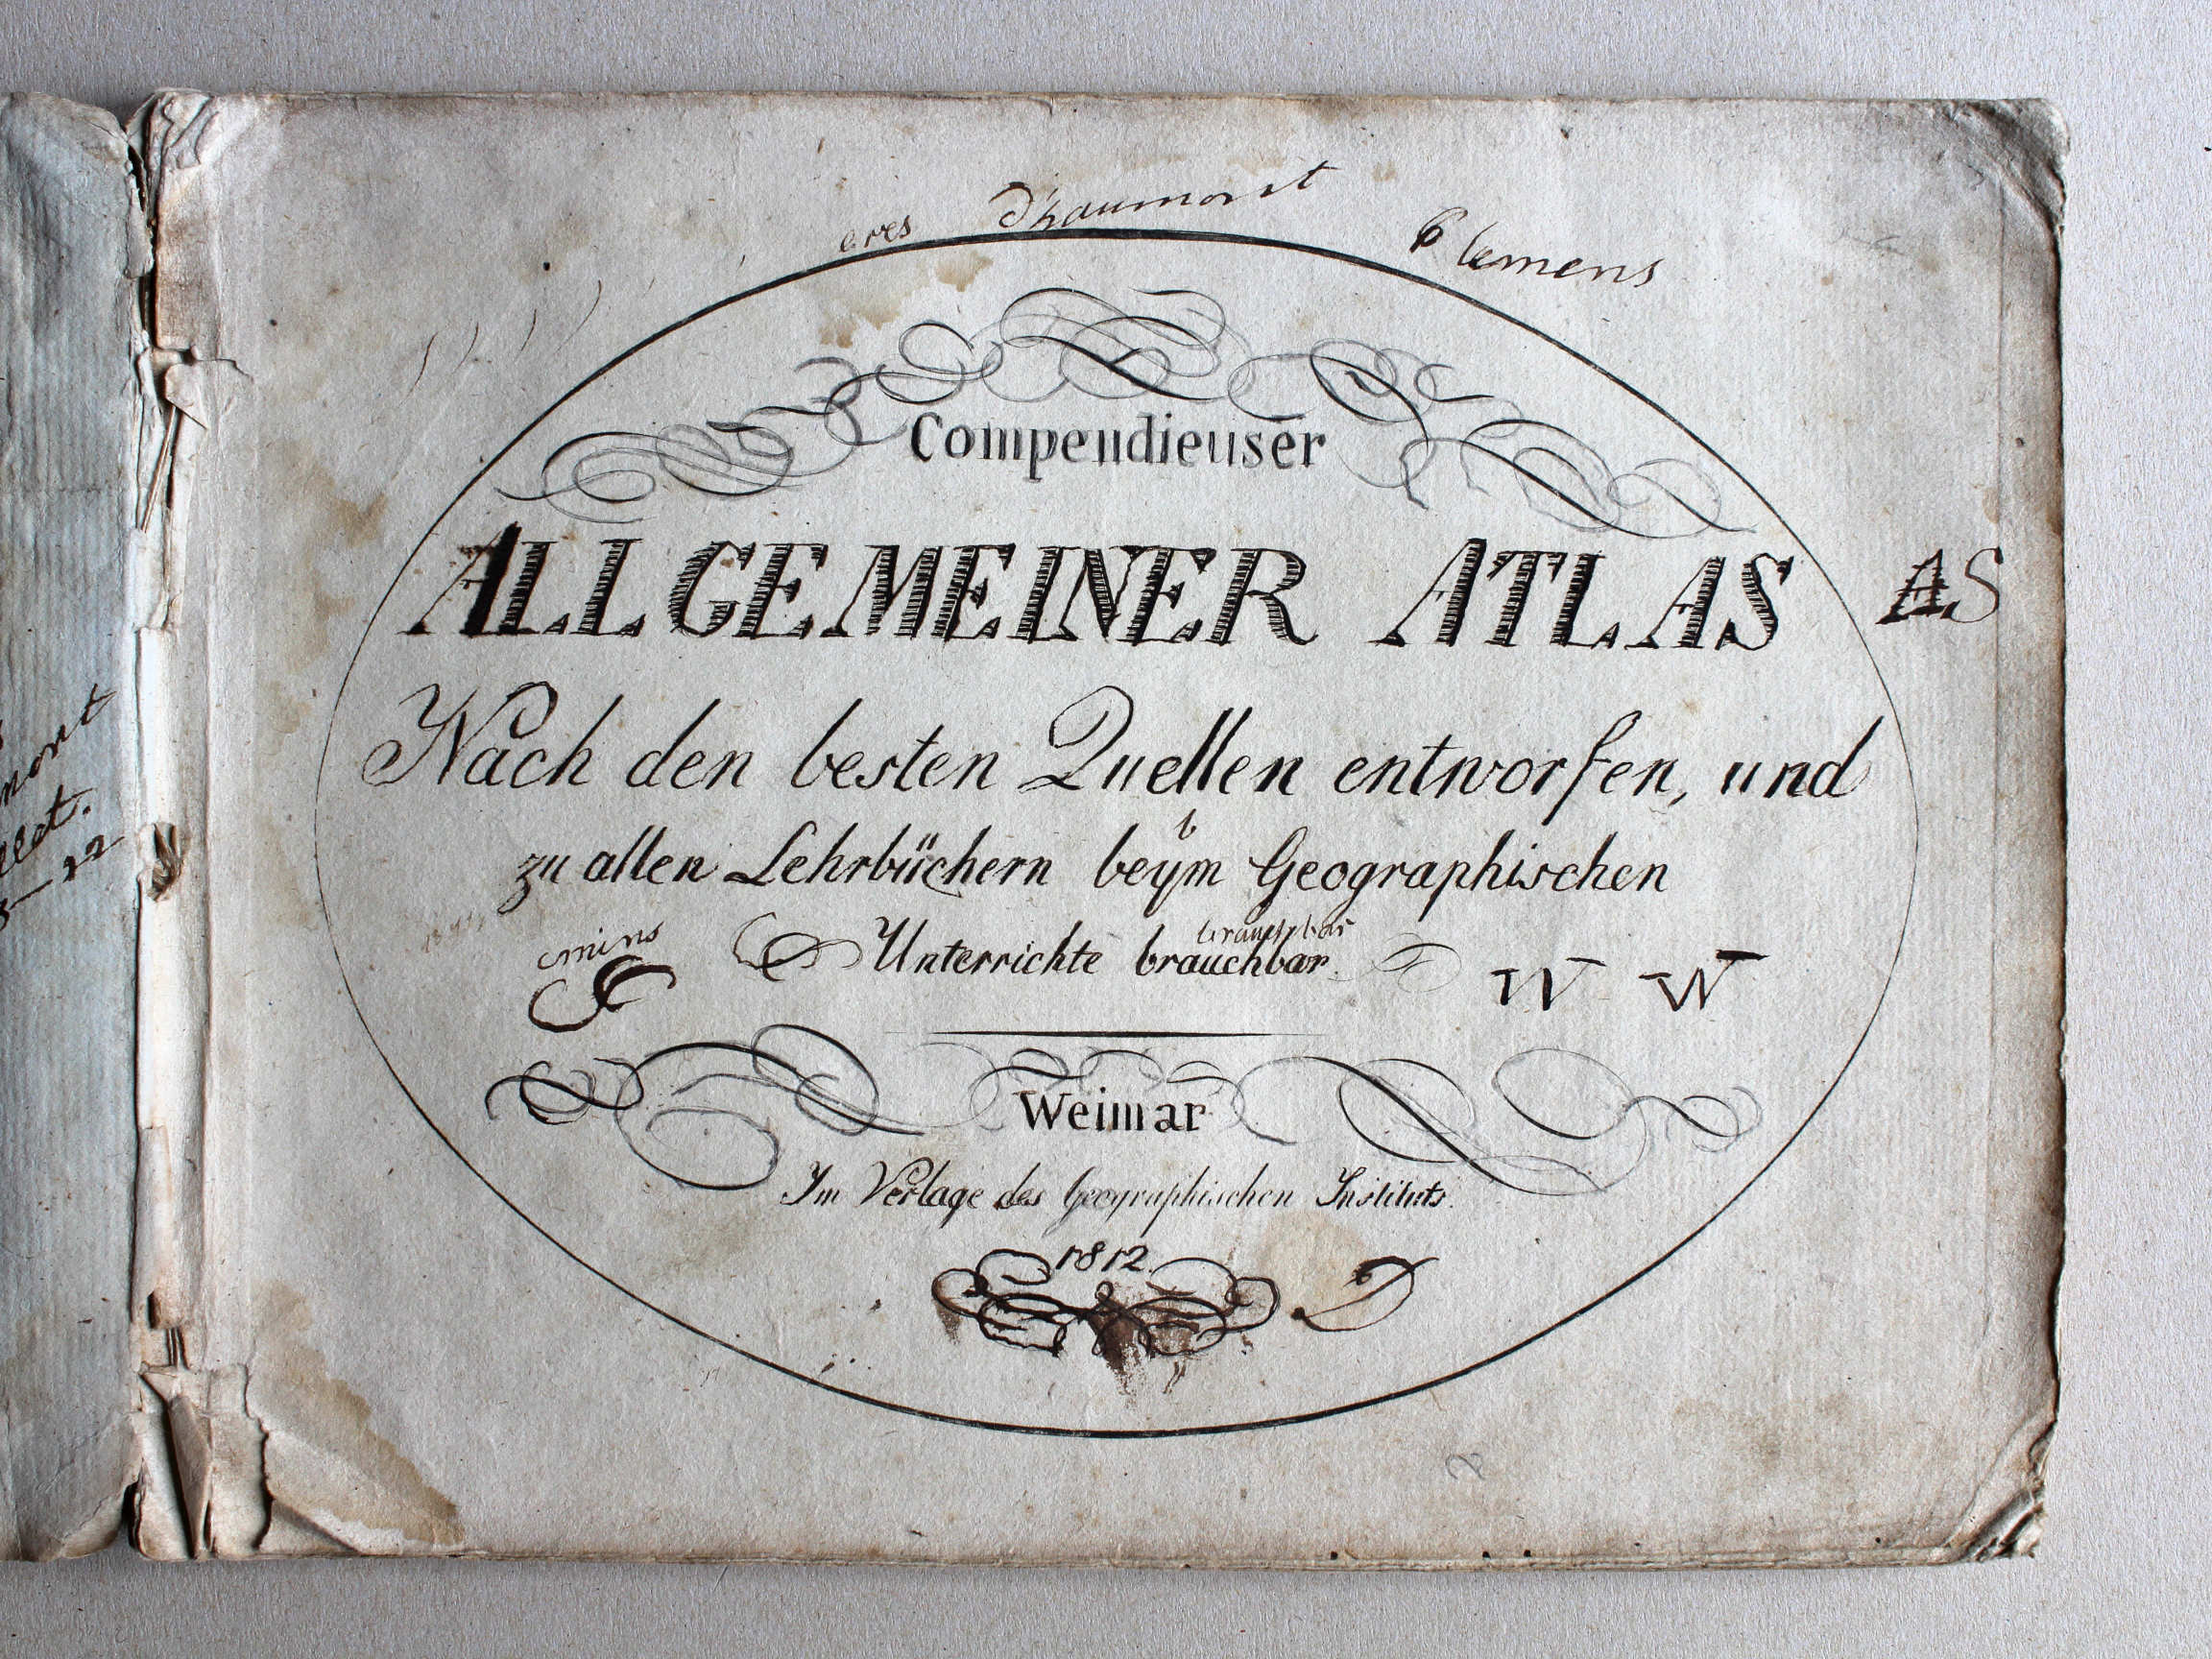 eres Dhaumont Clemens
Compendieuser
ALLGEMEINER ATLAS AS
Nach den besten Quellen entworfen, und
b
zu allen Lehrbüchern beÿm Geographischen
mins brauchbar
Unterrichte brauchbar. W W
Weimar
Im Verlage des Geographischen Instituts.
1812.
D
mont
22